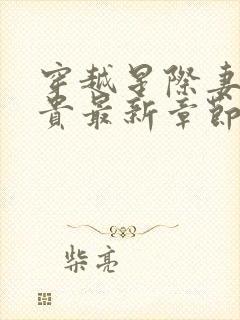 穿越星際妻
貴最新章節
柴亮